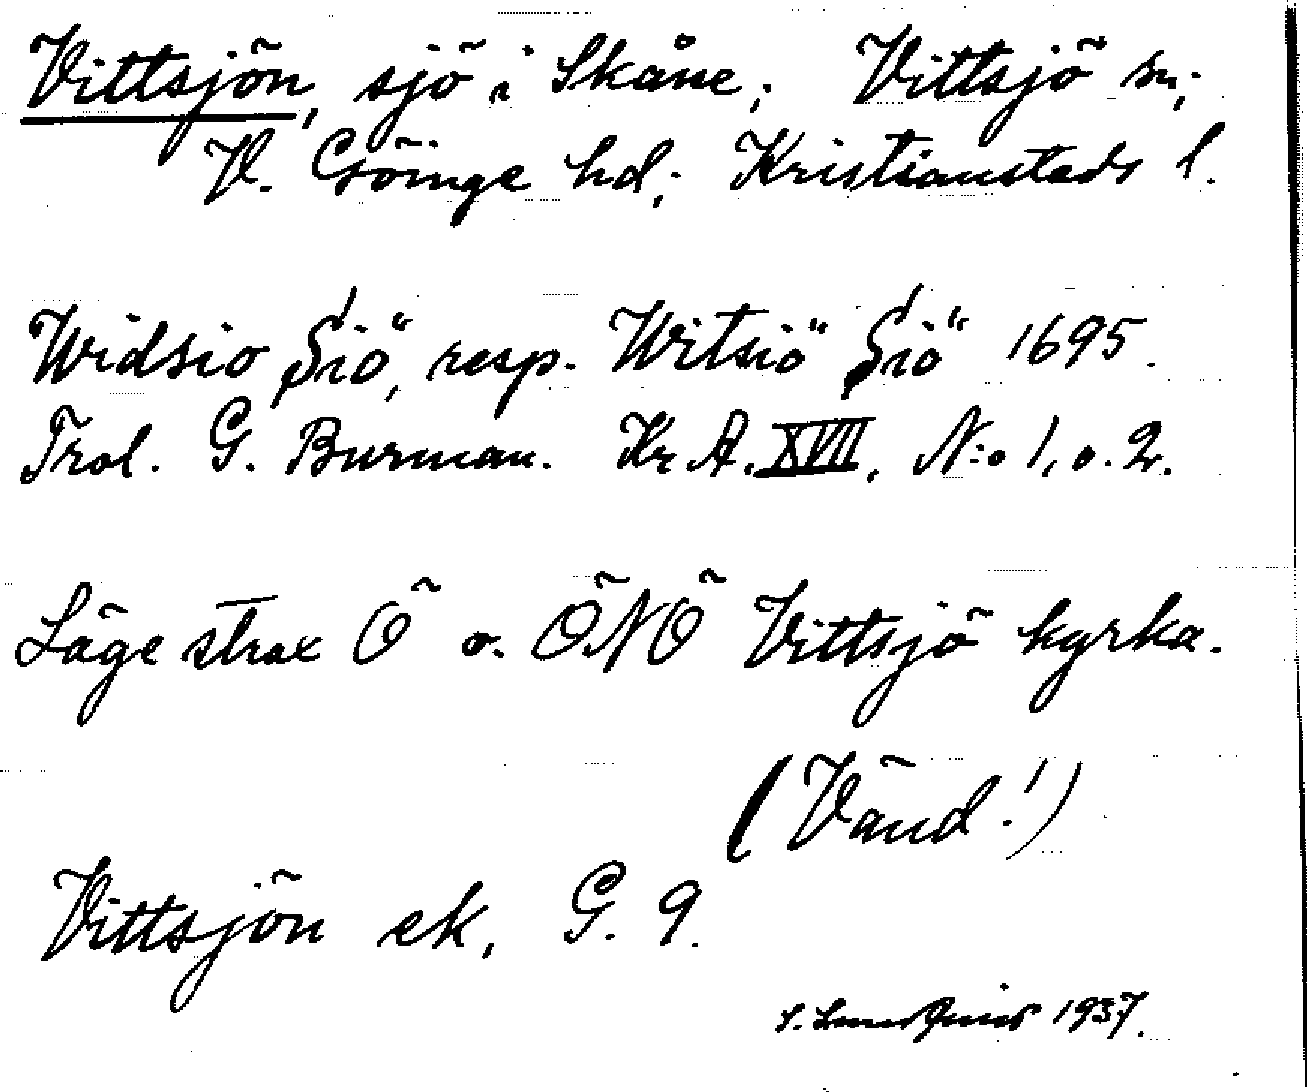 Vittsjön, sjö i Skåne; Vittsjö sn;
V. Göinge hd; Kristianstads l.
Widsio Siö, resp. Witsiö Siö 1695.
Trol. G. Burman. Kr A. XVII, N:o 1, o. 2.
Läge strax Ö o. ÖNÖ Vittsjö kyrka.
(Vänd!)
Vittsjön ek, G. 9.
1937.